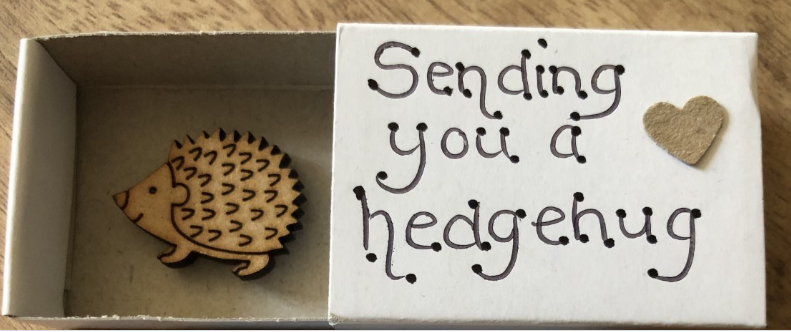 Sending
you a
hedgehug